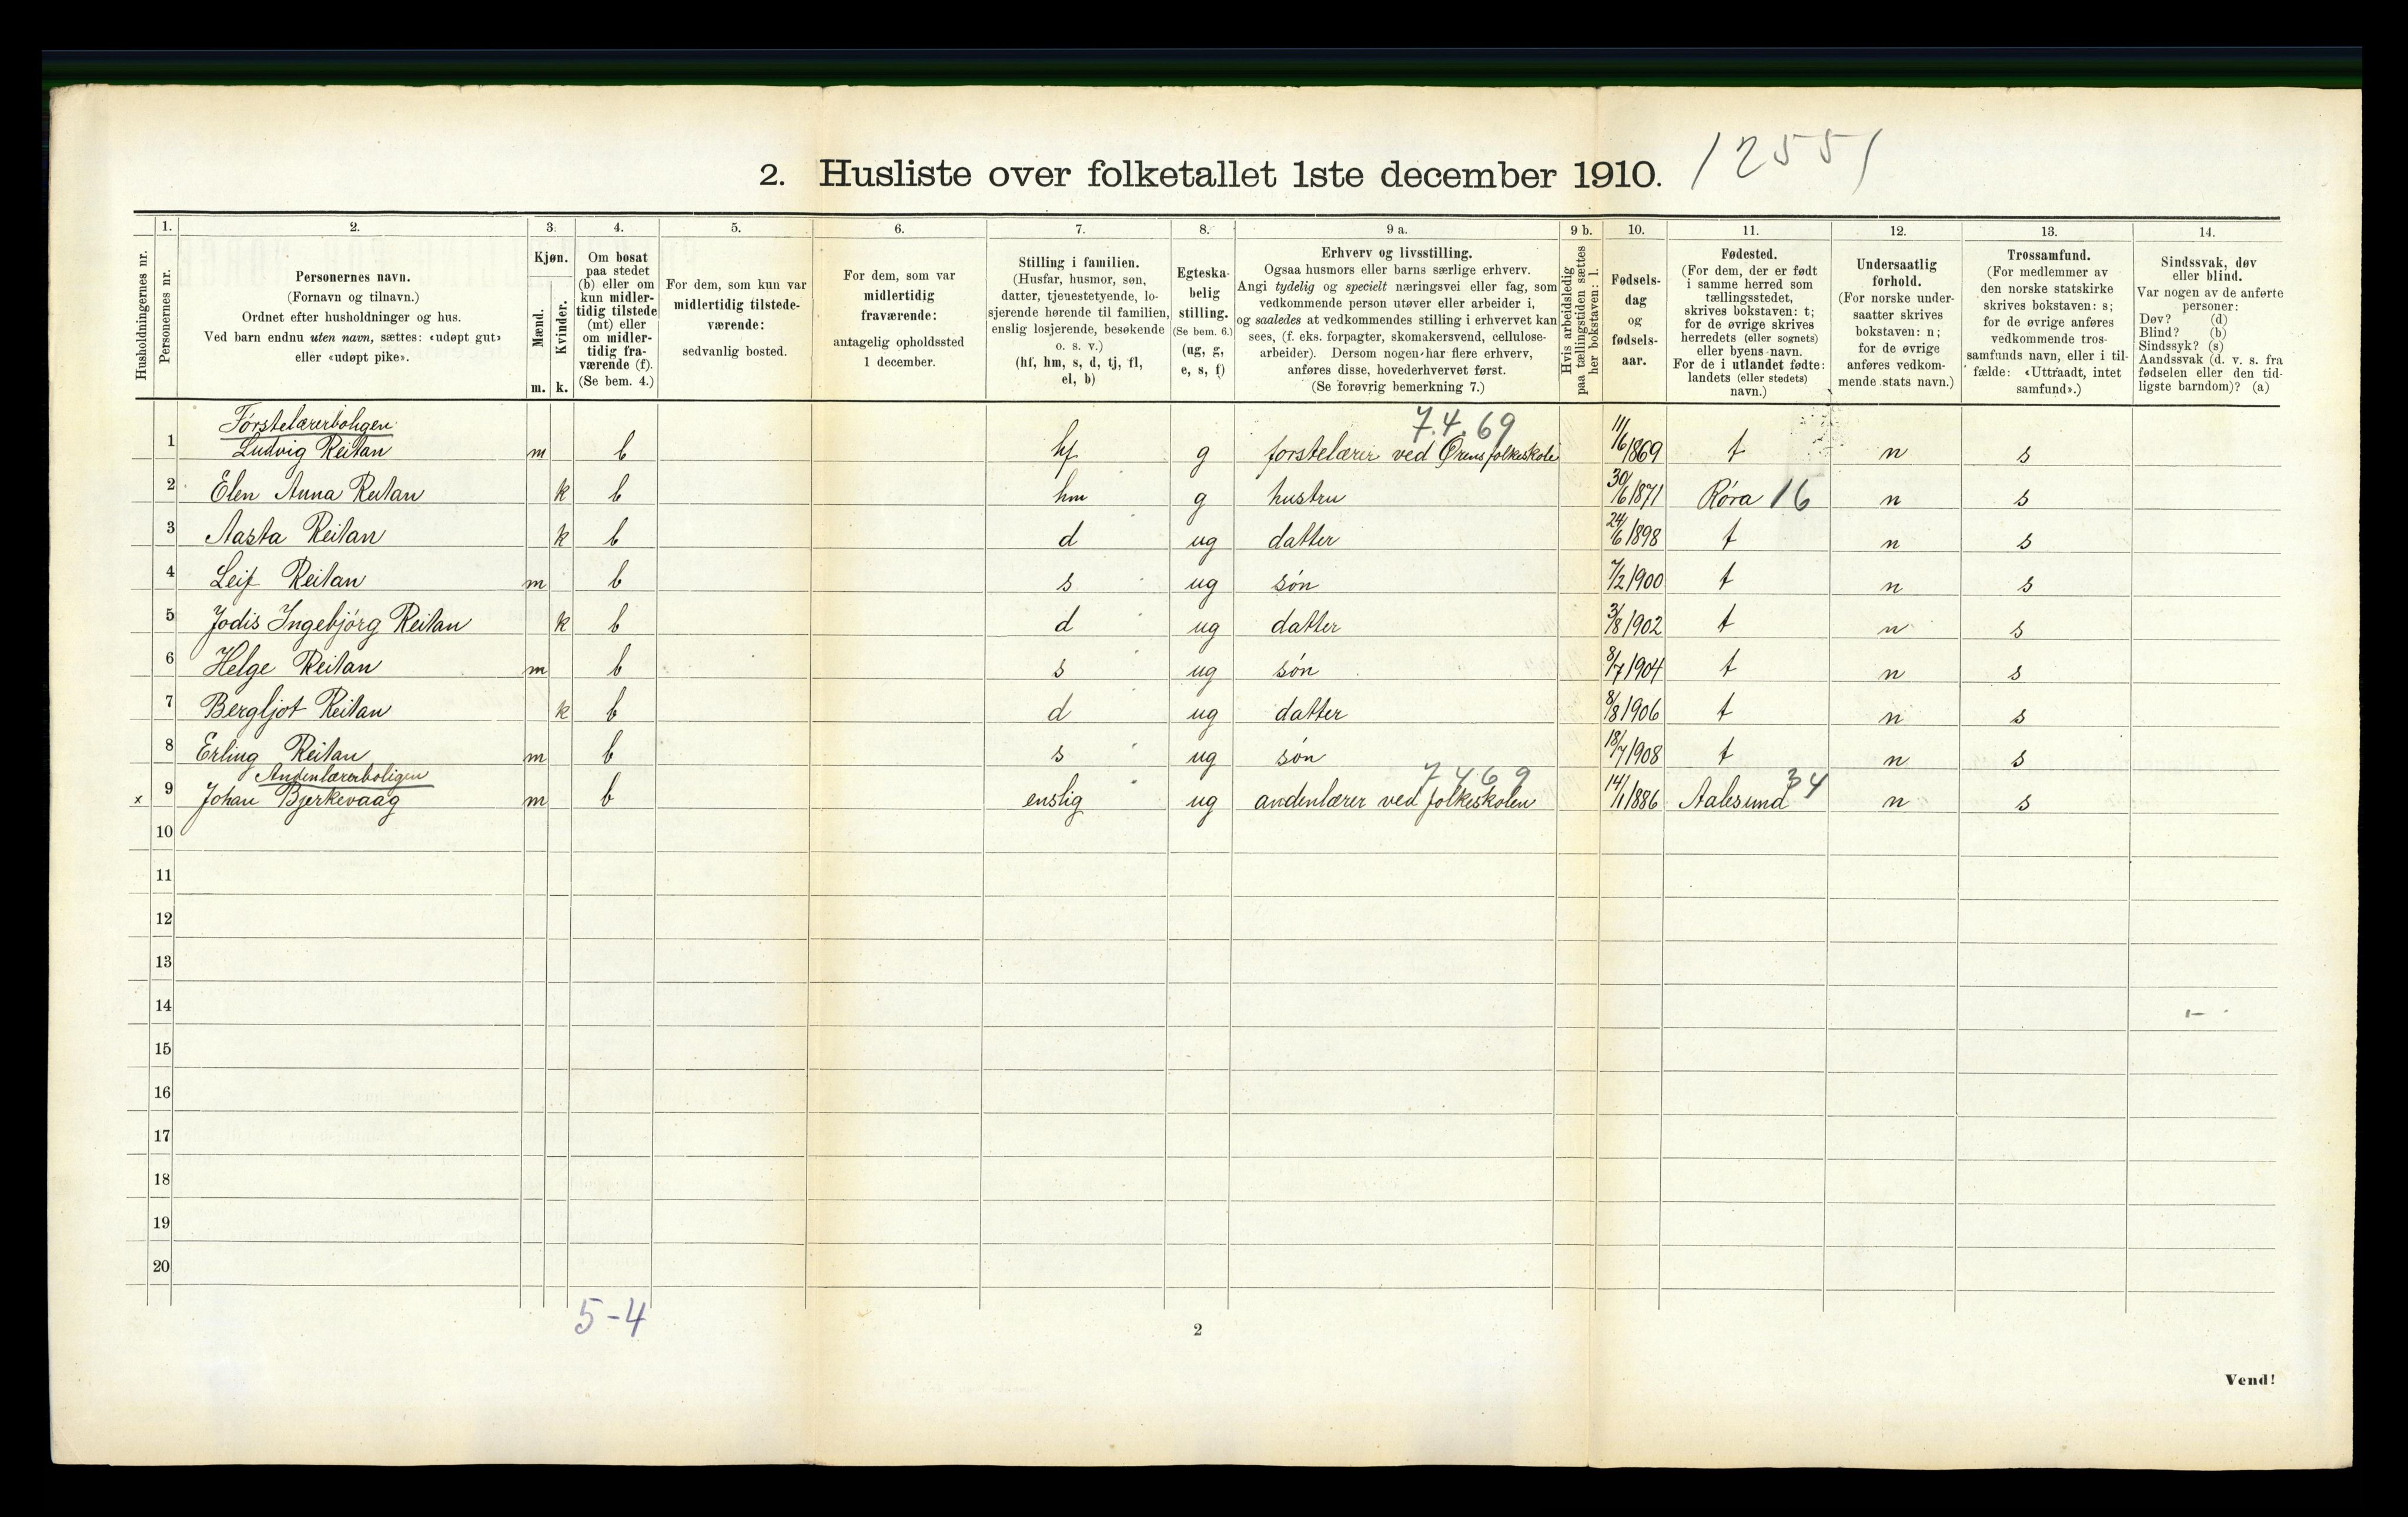 2. Husliste over folketallet 1ste december 1910. 12551
1. 2. 3. 4. 5. 6. 7. 8. 9 a. 9 b. 10. 11. 12. 13. 14.
Husholdningernes nr.
Personernes nr.
Personernes navn.
(Fornavn og tilnavn.)
Ordnet efter husholdninger og hus.
Ved barn endnu uten navn, sættes: «udøpt gut»
eller «udøpt pike».
Kjøn.
Mænd.
m.
Kvinder.
k.
Om bosat
paa stedet
(b) eller om
kun midler-
tidig tilstede
(mt) eller
om midler-
tidig fra-
værende (f).
(Se bem. 4.)
For dem, som kun var
midlertidig tilstede-
værende:
sedvanlig bosted.
For dem, som var
midlertidig
fraværende:
antagelig opholdssted
1 december.
Stilling i familien.
(Husfar, husmor, søn,
datter, tjenestetyende, lo-
sjerende hørende til familien,
enslig losjerende, besøkende
o. s. v.)
(hf, hm, s, d, tj, fl,
el, b)
Egteska-
belig
stilling.
(Se bem. 6.)
(ug, g,
e, s, f)
Erhverv og livsstilling.
Ogsaa husmors eller barns særlige erhverv.
Angi tydelig og specielt næringsvei eller fag, som
vedkommende person utøver eller arbeider i,
og saaledes at vedkommendes stilling i erhvervet kan
sees, (f. eks. forpagter, skomakersvend, cellulose-
arbeider). Dersom nogen har flere erhverv,
anføres disse, hovederhvervet først.
(Se forøvrig bemerkning 7.)
Hvis arbeidsledig
paa tællingstiden sættes
her bokstaven: l.
Fødsels-
dag
og
fødsels-
aar.
Fødested.
(For dem, der er født
i samme herred som
tællingsstedet,
skrives bokstaven: t;
for de øvrige skrives
herredets (eller sognets)
eller byens navn.
For de i utlandet fødte:
landets (eller stedets)
navn.)
Undersaatlig
forhold.
(For norske under-
saatter skrives
bokstaven: n;
for de øvrige
anføres vedkom-
mende stats navn.)
Trossamfund.
(For medlemmer av
den norske statskirke
skrives bokstaven: s;
for de øvrige anføres
vedkommende tros-
samfunds navn, eller i til-
fælde: «Uttraadt, intet
samfund».)
Sindssvak, døv
eller blind.
Var nogen av de anførte
personer:
Døv? (d)
Blind? (b)
Sindssyk? (s)
Aandssvak (d. v. s. fra
fødselen eller den tid-
ligste barndom)? (a)
Førstelærerboligen 7.4.69
1 Ludvig Reitan m b hf g førstelærer ved Ørens folkeskole 11/6 1869 t n s
2 Elen Anna Reitan k b hm g hustru 30/6 1871 Røra 16 n s
3 Aasta Reitan k b d ug datter 24/6 1898 t n s
4 Leif Reitan m b s ug søn 7/2 1900 t n s
5 Jodis Ingebjørg Reitan k b d ug datter 3/8 1902 t n s
6 Helge Reitan m b s ug søn 8/7 1904 t n s
7 Bergljot Reitan k b d ug datter 8/8 1906 t n s
8 Erling Reitan m b s ug søn 18/7 1908 t n s
Andenlærerboligen 7469
x 9 Johan Bjerkevaag m b enslig ug andenlærer ved folkeskolen 14/1 1886 Aalesund 34 n s
10
11
12
13
14
15
16
17
18
19
20
5-4
2
Vend!